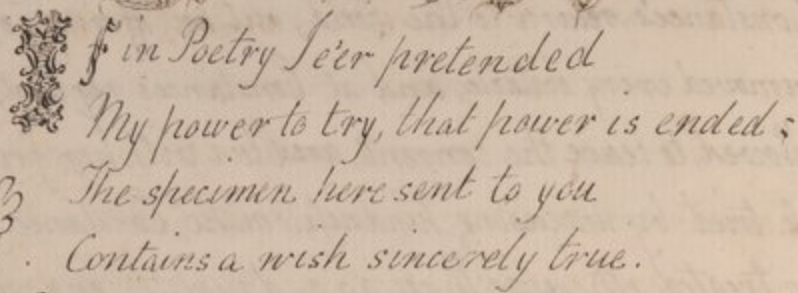 If in Poetry I e'er pretended
My power to try, that power is ended;
The specimen here sent to you
Contains a wish sincerely true.